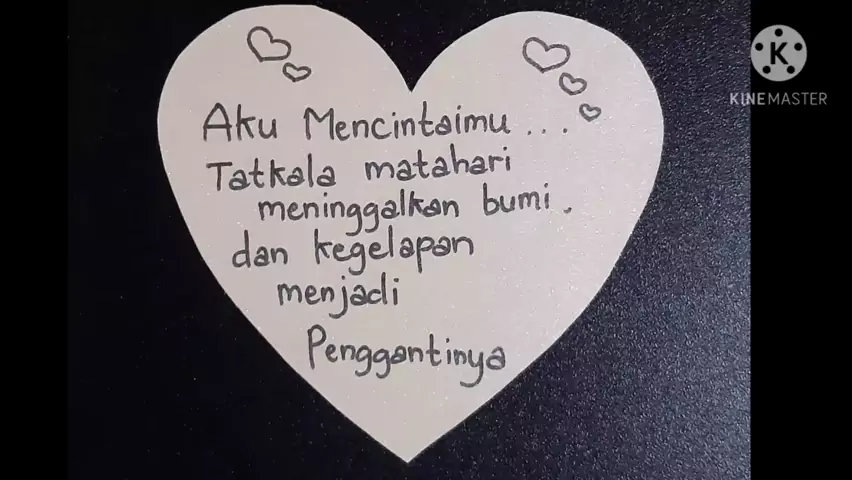 Aku Mencintaimu...
Tatkala matahari
meninggalkan bumi.
dan kegelapan
menjadi
Penggantinya
KINEMASTER